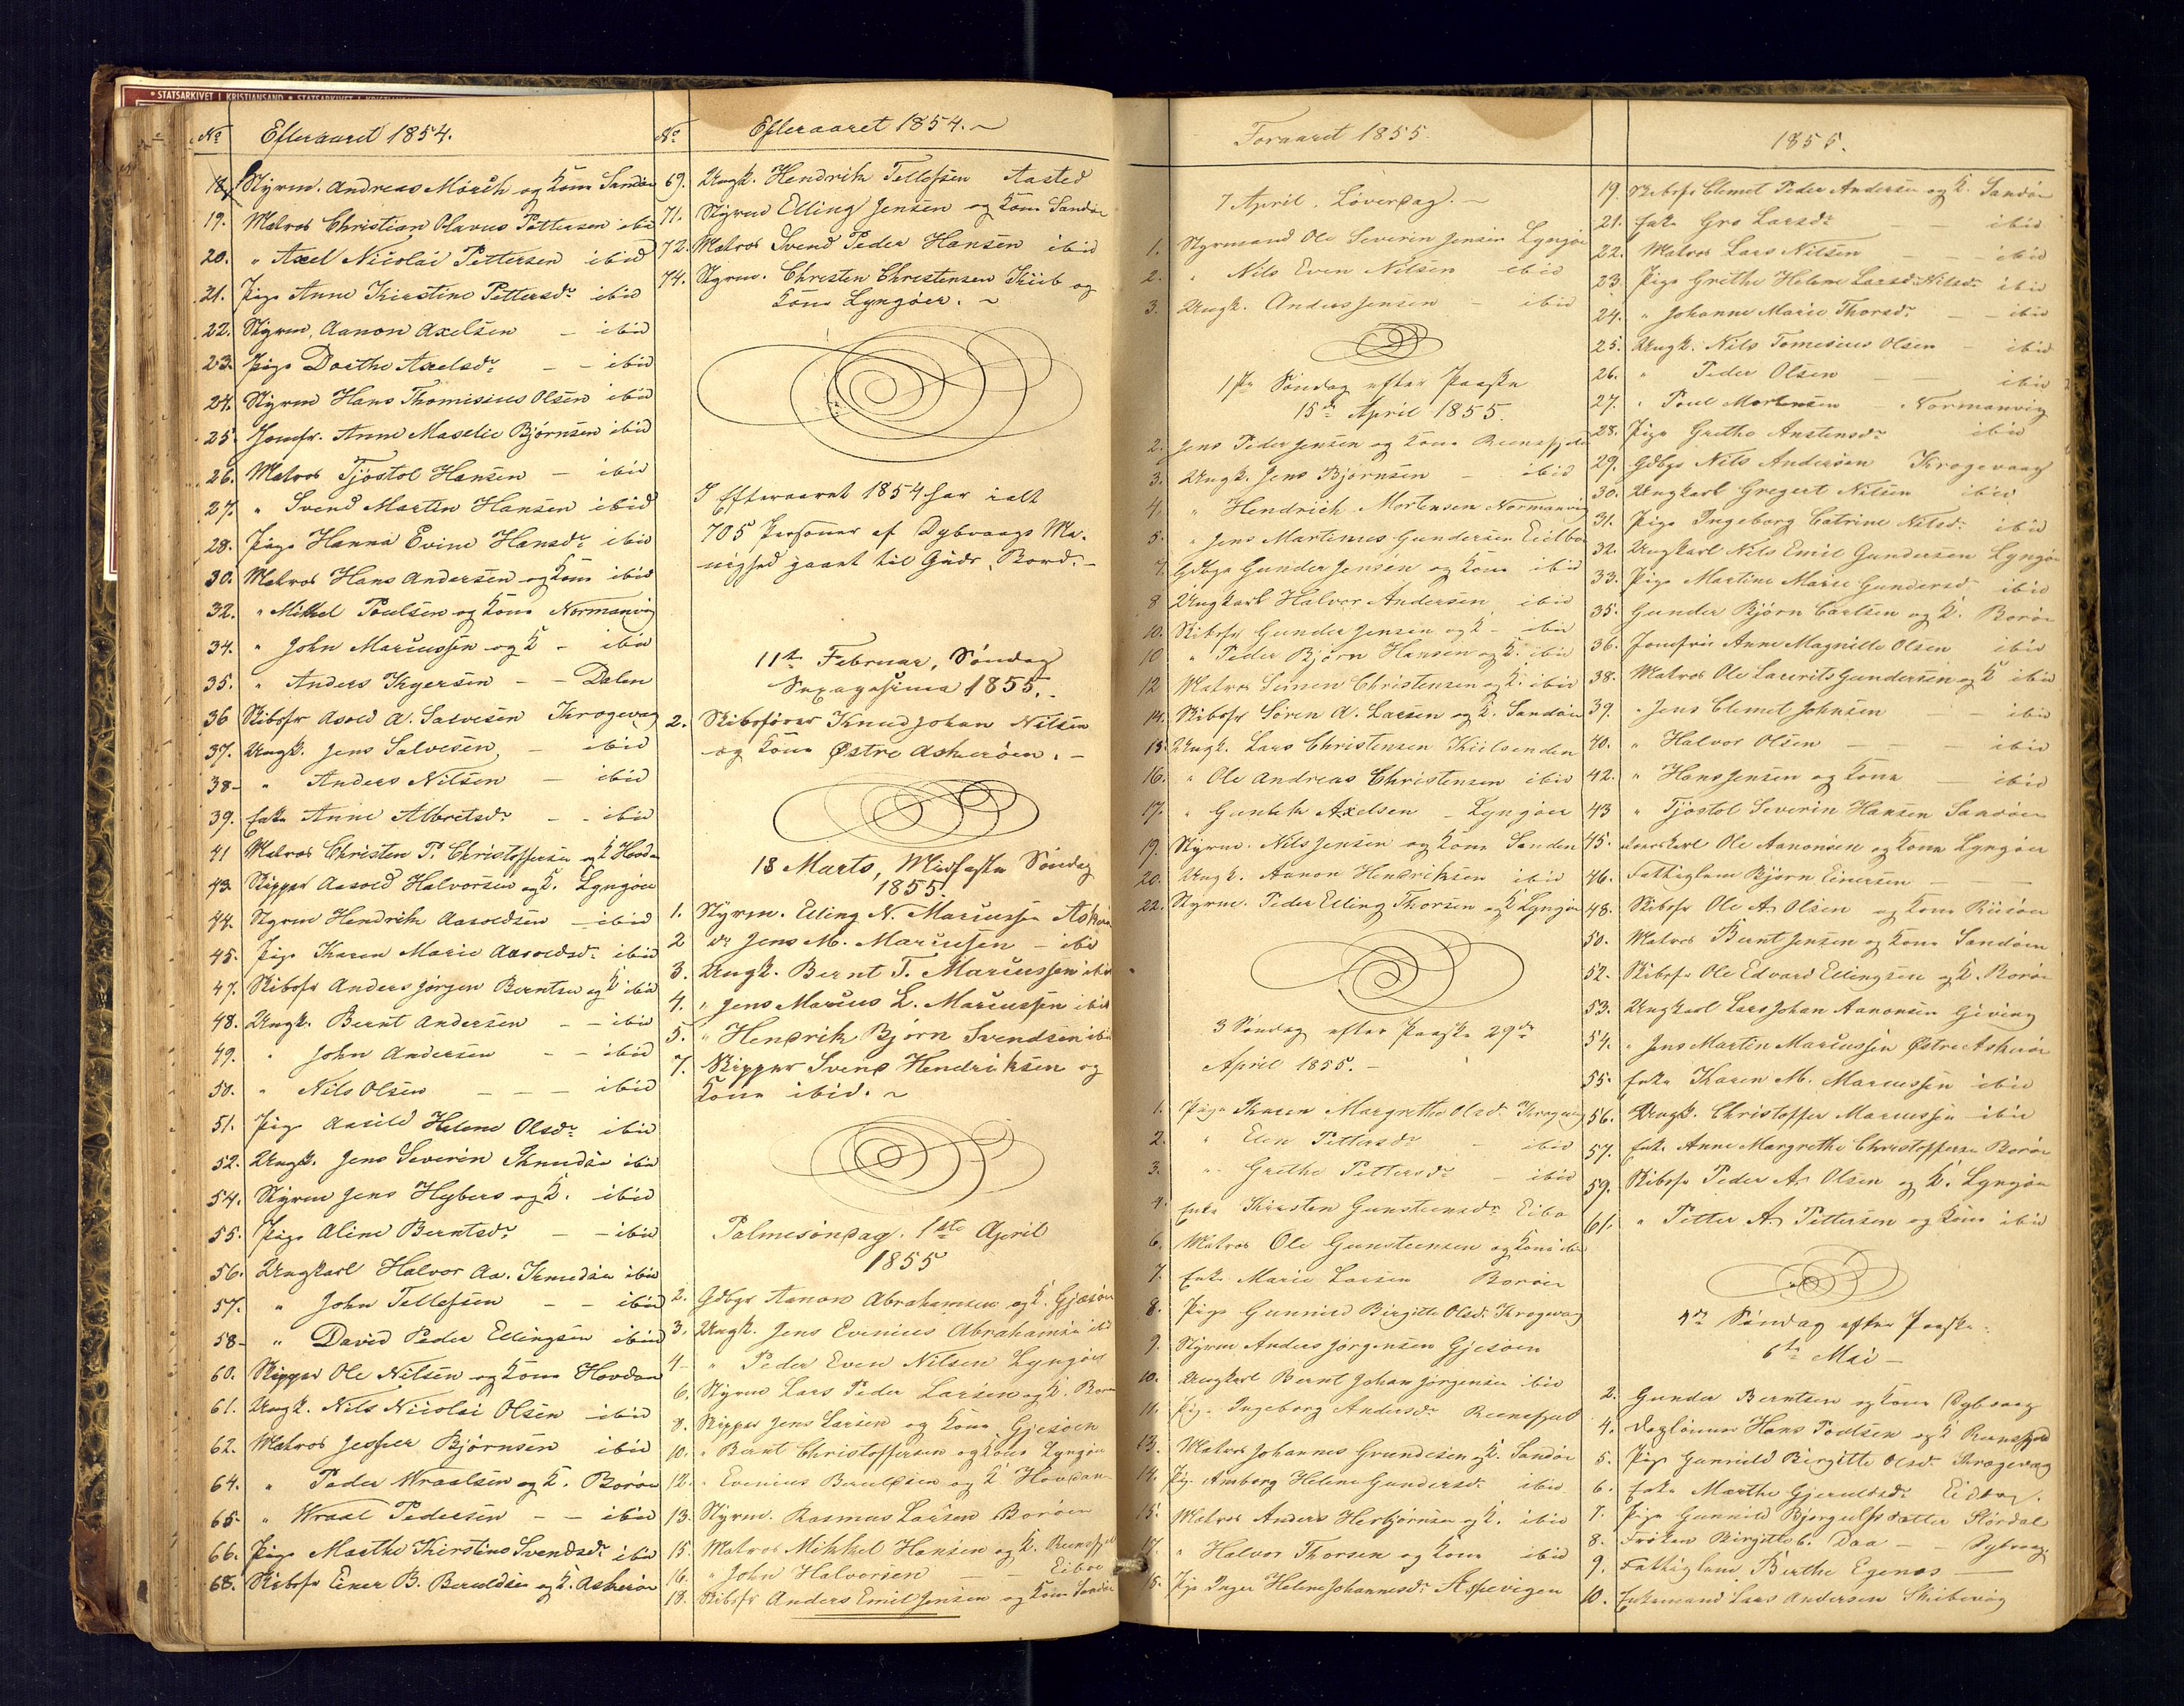 STATSARKIVET I KRISTIANSAND * STATSARKIVET I KRISTIANSAND
No Efteraaret 1854.
18. Styrm. Andreas Mörch og Kone Sandøe
19. Matros Christian Olavus Pettersen ibid
20. " Axel Nicolai Pettersen ibid
21. Pige Anne Kirstine Pettersdr ibid
22. Styrm. Aanon Axelsen – ibid
23. Pige Dorthe Axelsdr – – ibid
24. Styrm Hans Thomisius Olsen ibid
25. Jomfr. Anne Maselie Bjørnsen ibid
26. Matros Tjøstol Hansen – ibid
27. " Svend Martin Hansen ibid
28. Pige Hanna Evine Hansdr ibid
30. Matros Hans Andersen og Kone ibid
32. " Mikkel Poulsen og Kone Normanvig
34. " John Marcussen og K – ibid
35. " Anders Kyersen – – Dalen
36 Skibsfr Asold A. Salvesen Krogevag
37. Ungk. Jens Salvesen – ibid
38– " Anders Nilsen – ibid
39. Enke Anne Albretsdr – – ibid
41 Matros Christen P. Christoffersen og K Hovda
43. Skipper Aasold Halvorsen og K. Lyngøer
44. Styrm Hendrik Aasoldsen – ibid
45. Pige Karen Marie Aasoldsdr ibid
47. Skibsfr Anders Jørgen Berntsen og K ibid
48. Ungk. Bernt Andersen – – ibid
49. " John Andersen – – ibid
50. " Nils Olsen – – – ibid
51. Pige Aasild Helene Olsdr ibid
52. Ungk. Jens Severin Knudsen ibid
54. Styrm Jens Hybers og K. ibid
55. Pige Aline Berntsdr – – ibid
56. Ungkarl Halvor Aa. Knudsen ibid
57. " John Tellefsen – – ibid
58– " David Peder Ellingsen ibid
60. Skipper Ole Nilsen og Kone Hovdan
61. Ungk. Nils Nicolai Olsen ibid
62. Matros Jesper Bjørnsen ibid
64. " Peder Wraalsen og K. Borøen
65. " Wraal Pedersen – – ibid
66. Pige Marthe Kirstine Svendsdr ibid
68. Skibsfr Einer B. Beruldsen og K. Askerøen
No Efteraaret 1854. ~
69. Ungk. Hendrik Tellefsen Aasted
71. Styrm Elling Jensen og Kone Sandøe
72. Matros Svend Peder Hansen ibid
74. Styrm. Christen Christensen Kiib og
Kone Lyngøer. ~
I Efteraaret 1854 har ialt
705 Personer af Dybvaags Me-
nighed gaaet til Guds Bord. –
11te Februar, Søndag
Sexagesima 1855. –
2. Skibsfører Knud Johan Nilsen
og Kone Østre Askerøen. –
18 Marts, Midfaste Søndag
1855
1. Styrm. Elling N. Marcussen Askerøe
2 dr Jens M. Marcussen – ibid
3. Ungk. Bernt T. Marcussen ibid
4. " Jens Marcus L. Marcussen ibid
5. " Hendrik Bjørn Svendsen ibid
7. Skipper Svend Hendriksen og
Kone ibid. ~
Palmesøndag. 1ste April
1855
2. Gdbgr Aanon Abrahamsen og K. Gjesøen
3. Ungk. Jens Evenius Abrahamsen ibid
4– " Peder Even Nilsen Lyngøer
6. Styrm Lars Peder Larsen og K. Borøe
8. Skipper Jens Larsen og Kone Gjesøen
10. " Bernt Christoffersen og Kone Lyngøer
12. " Evenius Beruldsen og K Hovdan
13. Styrm. Rasmus Larsen Borøen
15. Matros Mikkel Hansen og K. Reensfjel
16. " John Halvorsen – Eiboe
18. Skibsfr Anders Emil Jensen og Kone Sandøe
Foraaret 1855.
7 April. Løverdag. –
1. Styrmand Ole Severin Jensen Lyngøe
2. " Nils Even Nilsen – ibid
3. Ungk. Anders Jensen – ibid
1ste Søndag efter Paaske
15de April 1855.
2. Jens Peder Jensen og Kone Reensfjeld
3. Ungk. Jens Bjørnsen – ibid
4. " Hendrich Mortensen Normanvig
5. " Jens Martinus Gundersen Eiboe
7. Gdbgr Gunder Jensen og Kone ibid
8 Ungkarl Halvor Andersen ibid
10. Skibsfr Gunder Jensen og K – ibid
10 " Peder Bjørn Hansen og K. ibid
12 Matros Simen Christensen og K. ibid
14. Skibsfr Søren A. Larsen og K. Sandøen
15. Ungk. Lars Christensen Kiilsenden
16. " Ole Andreas Christensen ibid
17. " Guntik Axelsen – Lyngøer
19. Styrm. Nils Jensen og Kone Sanden
20. Ungk. Aanon Hendriksen ibid
22. Styrm. Peder Elling Thorsen og K Lyngøer
3 Søndag efter Paaske 29de
April 1855. –
1. Pige Karen Margrethe Olsdr Krogevag
2. " Elen Pettersdr – ibid
3. " Grethe Pettersdr – ibid
4. Enke Kirsten Gunsteensdr Eibo
6. Matros Ole Gunsteensen og Kone ibid
7. Enke Marie Larsen Borøen
8. Pige Gunnild Birgitte Olsdr Krogevag
9. Styrm Anders Jørgensen Gjesøen
10. Ungkarl Bernt Johan Jørgensen ibid
11. Pige Ingeborg Andersdr Reensfjeld
13. Matros Johannes Grundesen og K. Sandøe
14. Pige Amborg Helene Gundersdr ibid
15. Matros Anders Herbjørnsen og K. ibid
17. " Halvor Thorsen og Kone ibid
18. Pige Inger Helene Johannesdr Aspevigen
1855.
19. Skibsfr Clemet Peder Andersen og K. Sandøe
21. Enke Gro Larsdr – – ibid
22. Matros Lars Nilsen – – – ibid
23. Pige Grethe Helene Larsdr Nilsdr ibid
24. " Johanne Marie Thorsdr – – ibid
25. Ungk. Nils Tomesius Olsen – ibid
26. " Peder Olsen – – ibid
27. " Poul Mortensen – Normanvig
28. Pige Grethe Anstensdr ibid
29. Gdbgr Nils Andersen Krogevaag
30. Ungkarl Gregert Nilsen ibid
31. Pige Ingeborg Catrine Nilsdr ibid
32. Ungkarl Nils Emil Gundersen Lyngøe
33. Pige Martine Marie Gundersdr ibid
35. Gunder Bjørn Carlsen og K. Borøe
36. Jomfru Anne Magnille Olsen ibid
38. Matros Ole Laurits Gundersen og K ibid
39. " Jens Clemet Johnsen – ibid
40. " Halvor Olsen – – – ibid
42. " Hans Jensen og Kone – ibid
43 " Tjøstol Severin Hansen Sandøen
45. Ole Aanonsen og Kone Lyngøer
46. Fattiglem Bjørn Einersen – – –
48. Skibsfr Ole A. Olsen og Kone Riisøen
50. Matros Bernt Jensen og Kone Sandøen
52. Skibsfr Ole Edvard Ellingsen og K. Borøe
53. Ungkarl Lars Johan Aanonsen Giving
54. " Jens Martin Marcussen Østre Askerøe
55. Enke Karen M. Marcussen ibid
56. Ungk. Christoffer Marcussen – ibid
57. Enke Anne Margrethe Christoffersen Borøe
59. Skibsfr Peder A. Olsen og K. Lyngøer
61. " Petter A. Pettersen og Kone ibid
4de Søndag efter Paaske.
6te Mai –
2. Gunder Berntsen og Kone Dybvaag
4. Daglønner Hans Poulsen og K Reensfjeld
5. Pige Gunnild Birgitte Olsdr Krogevag
6. Enke Marthe Gjeruldsdr Eidbo.
7. Pige Gunnild Bjørgulfsdatter Slördal
8. Frøken Birgitte C. Daa – – Dybvaag.
9. Fattiglem Berthe Egenæs –
10. Enkemand Lars Andersen Skibevig